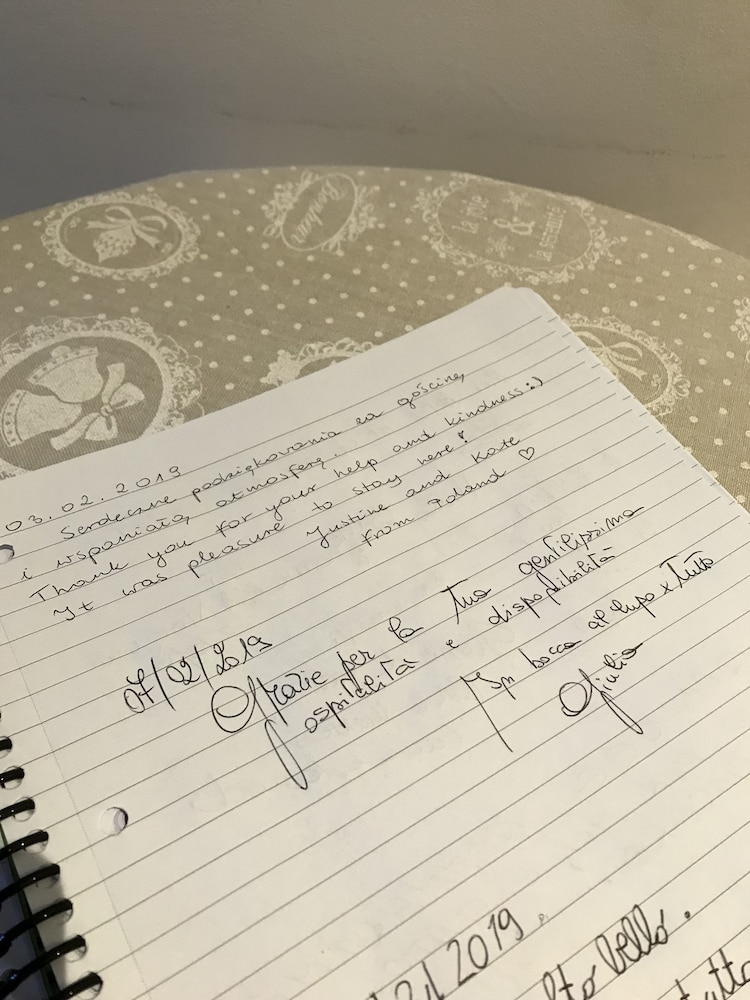 Bonheur
la joie
&
la sérénité
03.02.2019
Serdeczne podziękowania za gościnę
i wspaniałą atmosferę.
Thank you for your help and kindness :)
It was pleasure to stay here!
Justine and Kate
from Poland ♡
07/02/2019
Grazie per la tua gentilissima
ospitalità e disponibilità
In bocca al lupo x tutto
Giulia
2019
bello.
tutto